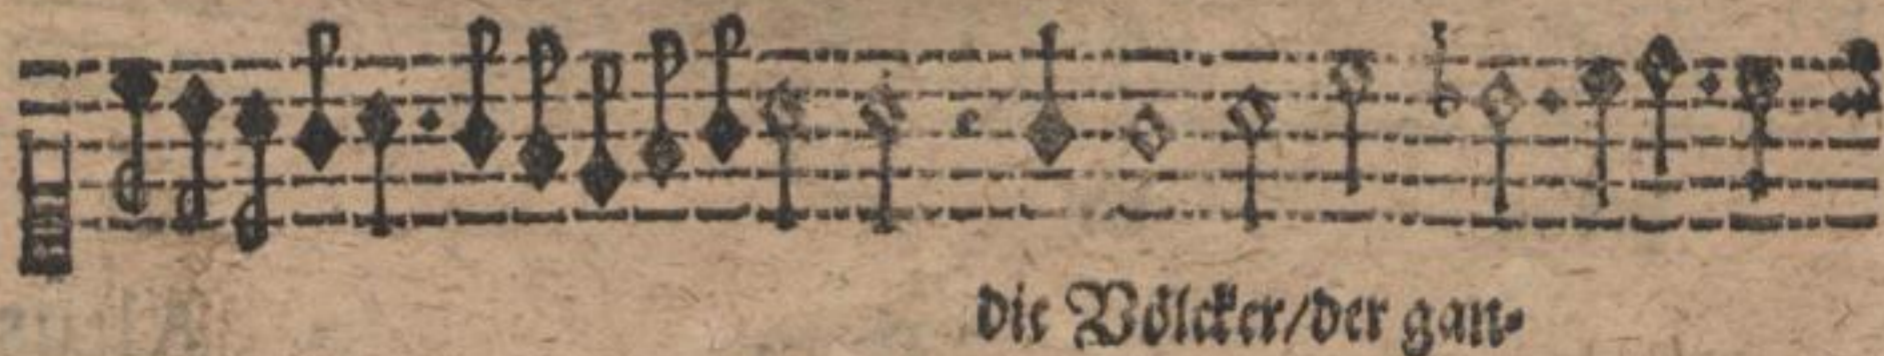 die Völcker/der gan-